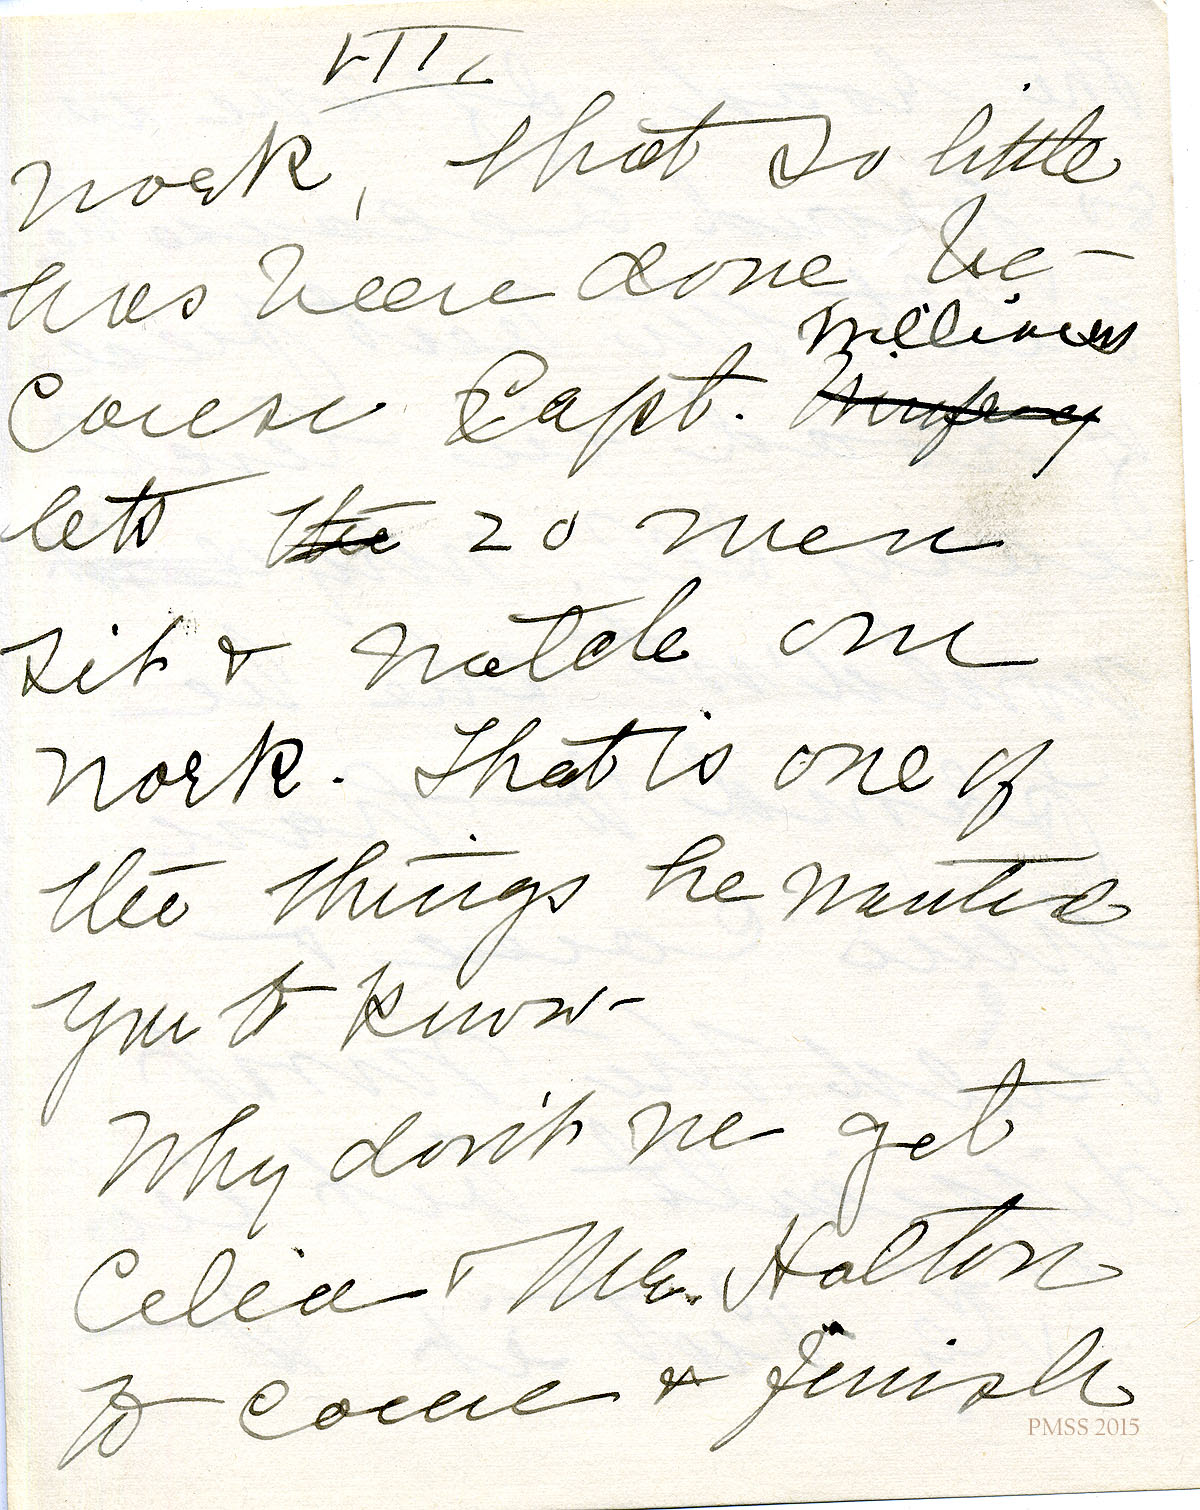 VII.
work, that so little
has been done be-
cause Capt. Williams
lets the 20 men
sit & watch one
work. That is one of
the things he wanted
you to know -
Why don't we get
Celia & Mr. Holton
to come & finish
PMSS 2015